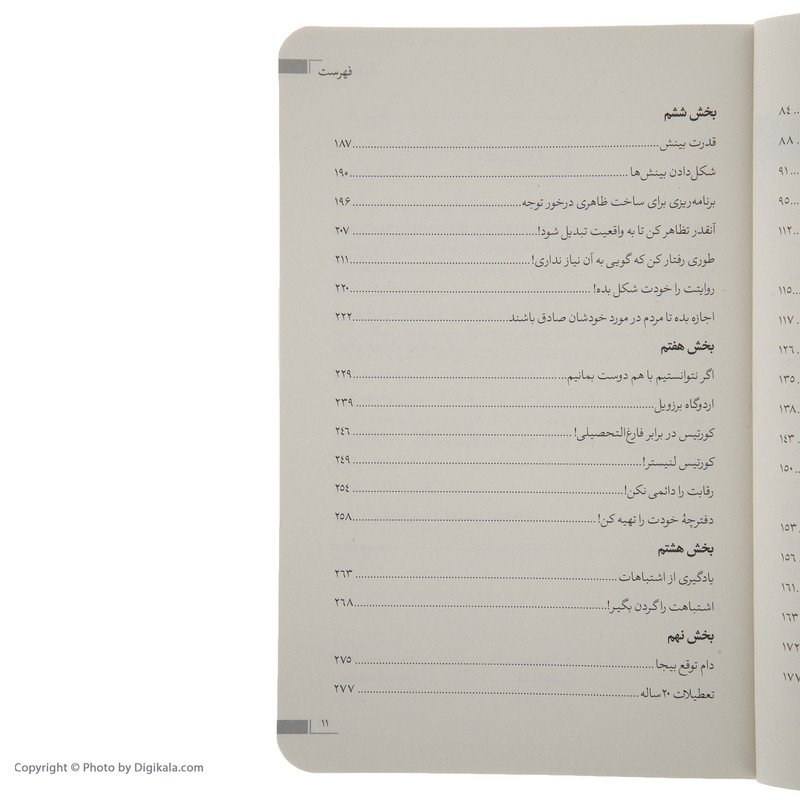 فهرست
بخش ششم
قدرت بینش ۱۸۷
شکل‌دادن بینش‌ها ۱۹۰
برنامه‌ریزی برای ساخت ظاهری درخور توجه ۱۹۶
آنقدر تظاهر کن تا به واقعیت تبدیل شود! ۲۰۷
طوری رفتار کن که گویی به آن نیاز نداری! ۲۱۱
روایتت را خودت شکل بده! ۲۲۰
اجازه بده تا مردم در مورد خودشان صادق باشند ۲۲۲
بخش هفتم
اگر نتوانستیم با هم دوست بمانیم ۲۲۹
اردوگاه برزویل ۲۳۹
کورتیس در برابر فارغ‌التحصیلی! ۲٤٦
کورتیس لنیستر! ۲٤۹
رقابت را دائمی نکن! ۲٥٤
دفترچهٔ خودت را تهیه کن! ۲٥۸
بخش هشتم
یادگیری از اشتباهات ۲٦۳
اشتباهت را گردن بگیر! ۲٦۸
بخش نهم
دام توقع بیجا ۲۷۵
تعطیلات ۲۰ساله ۲۷۷
۱۱
۸٤
۸۸
۹۱
۹۵
۱۱۲
۱۱۵
۱۱۷
۱۲٦
۱۳۵
۱۳۸
۱٤۳
۱۵۰
۱۵۳
۱۵٦
۱٦۱
۱٦۳
۱۷۲
۱۷۷
Copyright © Photo by Digikala.com